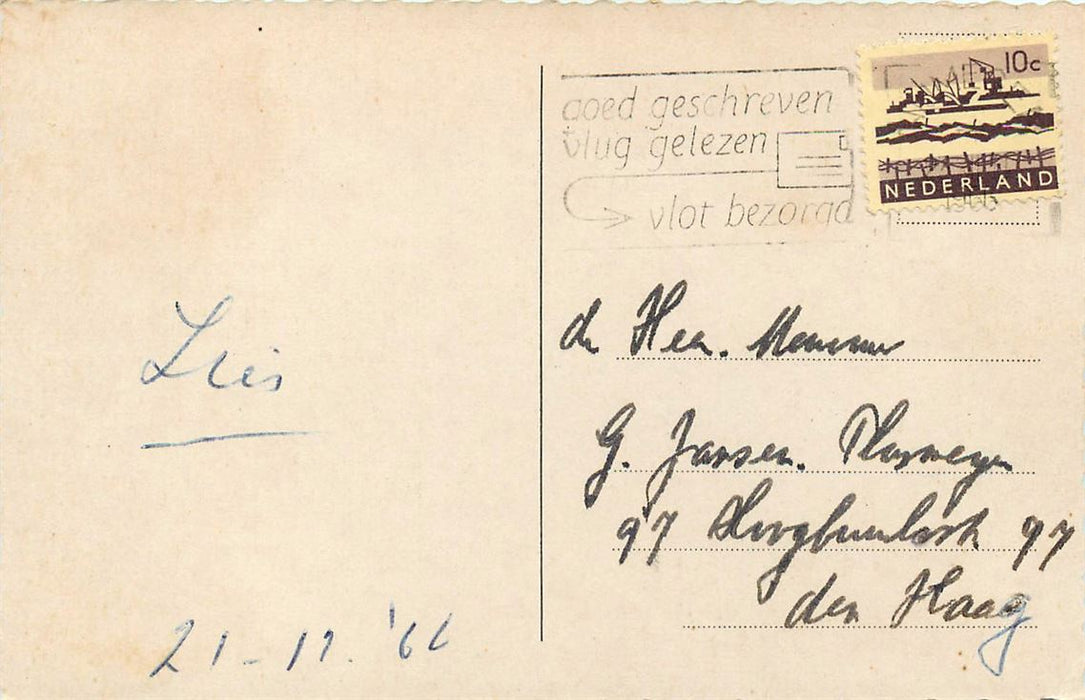 goed geschreven
vlug gelezen
vlot bezorgd
10c
NEDERLAND
1966
Lies
21-11.'66
de Heer.
G. Jansen.
97 97
den Haag